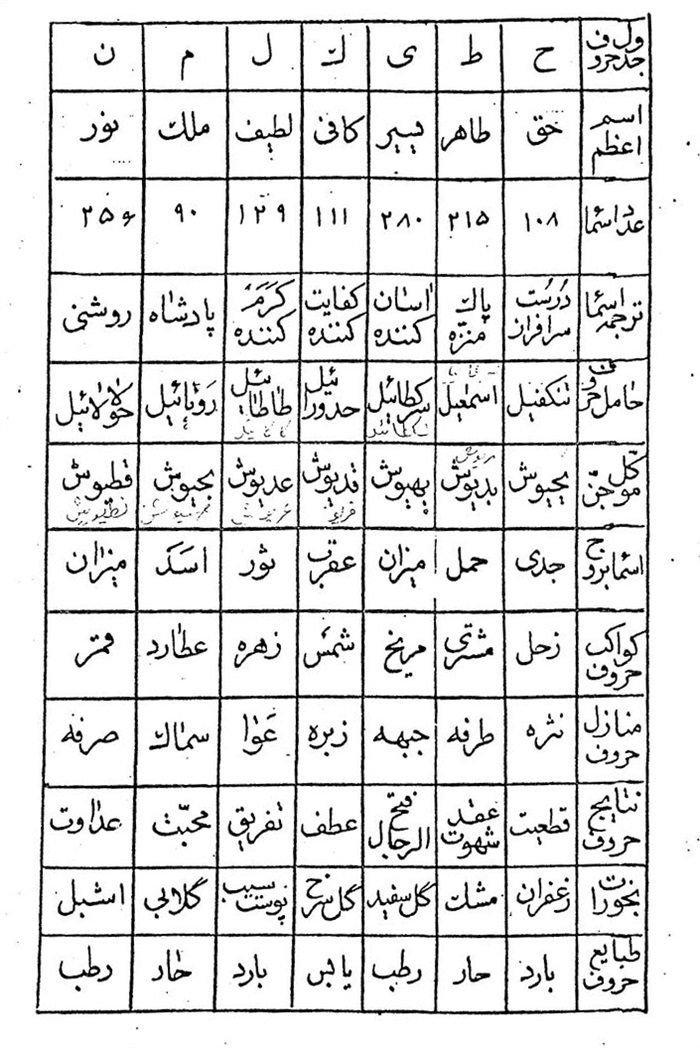 جدول حروف ح ط ی ک ل م ن
اسم اعظم حق طاهر یسیر کافی لطیف ملک نور
عدد اسما ۱۰۸ ۲۱۵ ۲۸۰ ۱۱۱ ۱۲۹ ۹۰ ۲۵۶
ترجمه اسما درست سرافراز پاک منزه اسان کننده کفایت کننده کرم کننده پادشاه روشنی
حامل حروف تنکفیل اسمعیل سرکطائیل حدورائیل طاطائیل رویائیل حولائیل
موکل جن یحیوش بدیوش یهیوش قدیوش عدیوش بحیوش قطیوش
اسما بروج جدی حمل میزان عقرب ثور اسد میزان
کواکب حروف زحل مشتری مریخ شمس زهره عطارد قمر
منازل حروف نثره طرفه جبهه زبره عوا سماک صرفه
نتایج حروف قطعیت عقد شهوت فتح الرجال عطف تفریق محبت عداوت
بخورات زعفران مشک گل سفید گل سرخ پوست سیب گلابی اشبل
طبایع حروف بارد حار رطب یابس بارد حار رطب